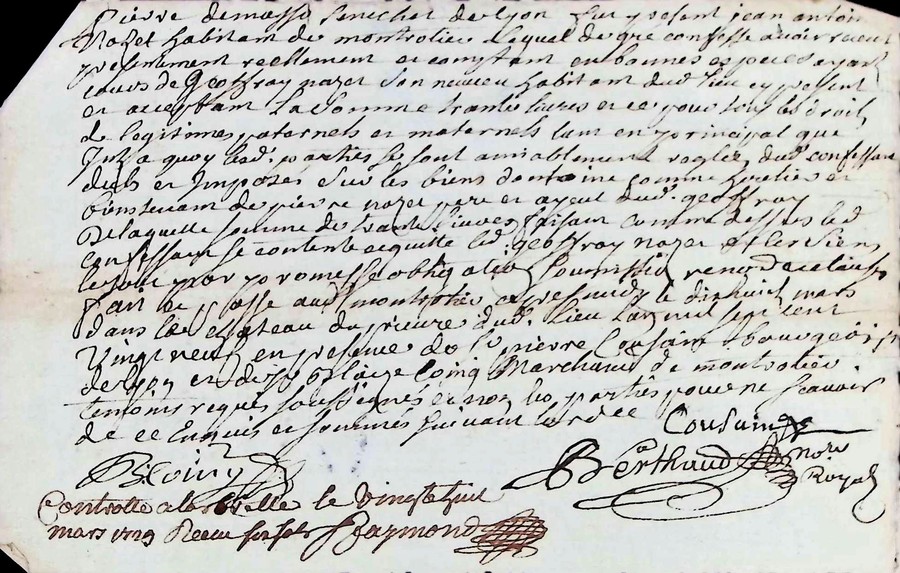 pierre demasso senechal de lyon fut present jean antoine
Nazet habitant de montrotier lequel de gre confesse avoir receu
presentement reellement et comptant en bonnes especes ayant
cours de Geoffray nazet son neveu habitant dud. lieu cy present
et acceptant la somme trante livres et ce pour tous les droits
de legitimes paternels et maternels tant en principal que
a quoy lesd. parties se sont amiablement reglez dud. confessant
deubs et Imposés sur les biens d'antoine comme heretier et
bienstenant de pierre nazet pere et ayeul dud. geoffray
De laquelle somme de trante livres faisant comme dessus led.
confessant se contente acquitte led. geoffray nazet et les siens
le tout par promesse obligation soumission renon. et clauses
fait et passé aud. montrotier apres midy le dixhuit mars
dans le chateau du prieuré dud. lieu lan mil sept cent
Vingt neuf en presence de sr. pierre Cousain bourgeois
de lyon et de sr. Blaize Coing Marchand de montrotier
temoins requis soussignés et non les parties pour ne scavoir
de ce Enquis et sommés suivant lordce
Cousain
B. Coing
Berthaud nore
Royal
Controllé a le Vingt huit
mars 1729 Receu Raymond